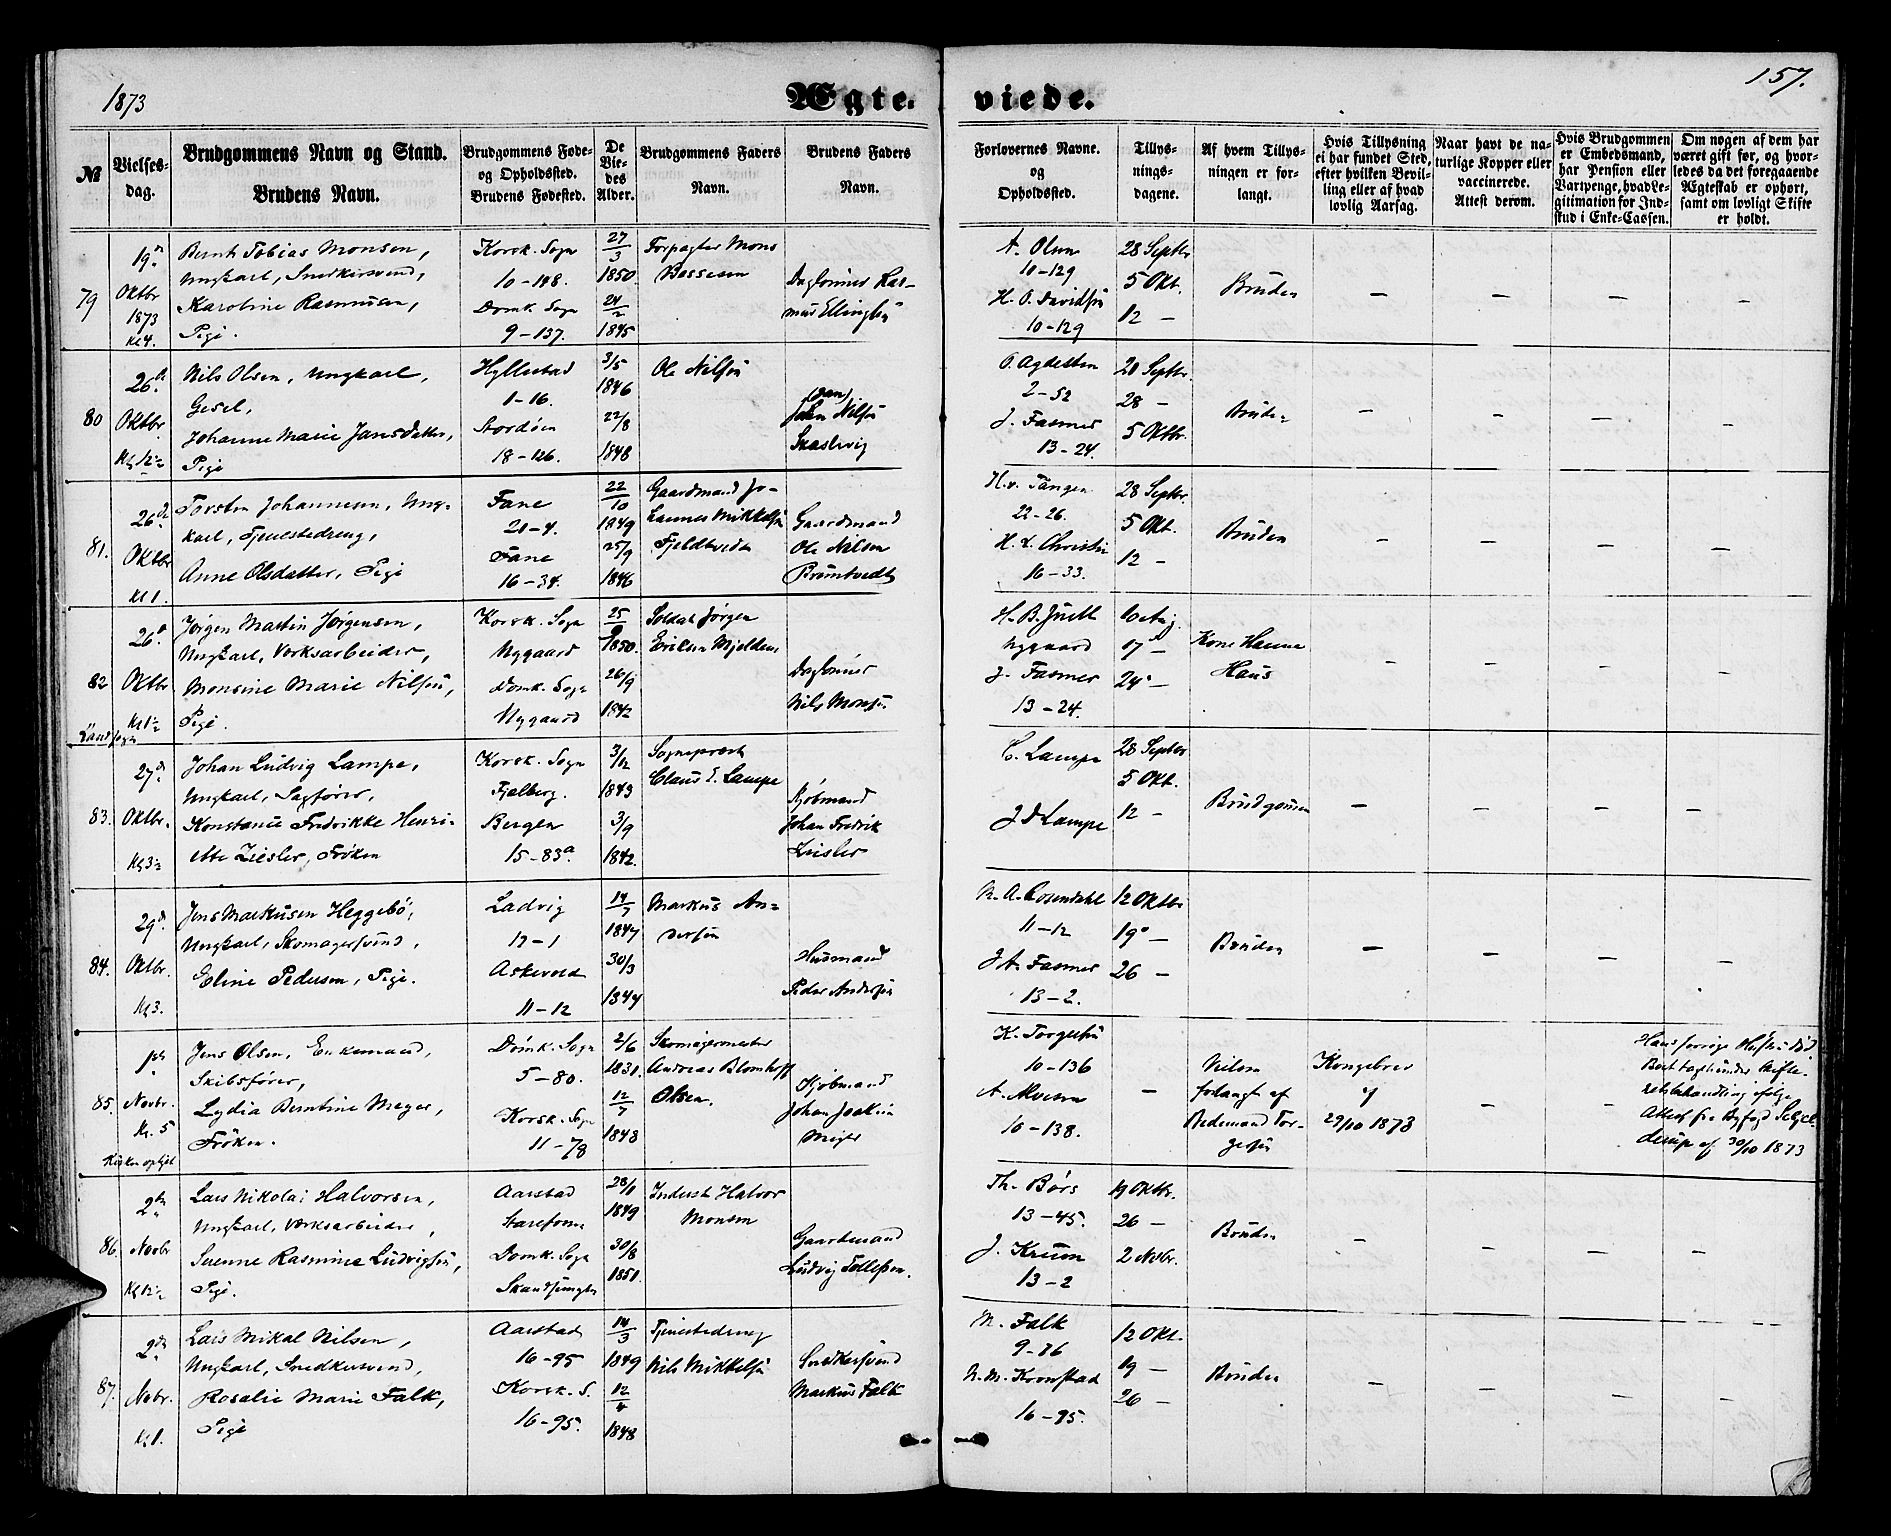 1873
Ægte.
viede.
157.
№
Vielses-
dag.
Brudgommens Navn og Stand.
Brudens Navn.
Brudgommens Føde-
og Opholdssted.
Brudens Fødested.
De
Vie-
des
Alder.
Brudgommens Faders
Navn.
Brudens Faders
Navn.
Forlovernes Navne.
og
Opholdssted.
Tillys-
nings-
dagene.
Af hvem Tillys-
ningen er for-
langt.
Hvis Tillysning
ei har fundet Sted,
efter hvilken Bevil-
ling eller af hvad
lovlig Aarsag.
Naar havt de na-
turlige Kopper eller
vaccinerede.
Attest derom.
Hvis Brudgommen
er Embedsmand,
har Pension eller
Vartpenge, hvad Le-
gitimation for Ind-
skud i Enke-Cassen.
Om nogen af dem har
været gift før, og hvor-
ledes da det foregaaende
Ægteskab er ophørt,
samt om lovligt Skifte
er holdt.
79
19de
Oktbr
1873
Kl 4.
Bernt Tobias Monsen,
Ungkarl, Snedkersvend,
Karoline Rasmusen,
Pige.
Korsk. Sogn
10-148.
Domk. Sogn
9-137.
27/3
1850.
24/2
1845
Forpagter Mons
Bessesen
Daglønner Ras-
mus Ellingsen
A. Olsen
10-129
H. O. Davidsen
10-129
28 Septbr
5 Okt.
12 -
Bruden
-
-
-
-
80
26de
Oktbr.
Kl 12½
Nils Olsen, Ungkarl,
Gesel,
Johanne Marie Jansdatter,
Pige
Hyllestad
1-16.
Stordøen
18-126.
3/5
1846
22/8
1848
Ole Nilsen
(Jan)
John Nilsen
O. Agdesten
2-52
J. Fasmer
13-24.
28 -
5 Oktbr.
Bruden
-
-
-
-
81.
26de
Oktbr
Kl 1.
Torsten Johannesen, Ung-
karl, Tjenestedreng,
Anne Olsdatter, Pige
Fane
21-4.
Fane
16-34.
22/10
1849
25/9
1846
Gaardmand Jo-
hannes Mikkelsen
Gaardmand
Ole Nilsen
H. v. Tangen
22-26.
16-33.
28 Septbr.
5 Okt.
12 -
Bruden
-
-
-
-
82
26de
Oktbr
Kl 1½
Jørgen Martin Jørgensen,
Ungkarl, Værksarbeider,
Monsine Marie Nilsen,
Pige.
Korsk. Sogn
Nygaard
Domk. Sogn
Nygaard
1850.
26/9
1842
Soldat Jørgen
Eriksen Mjelden,
Daglønner
Nils Monsen
Nygaard
J. Fasmer
13-24.
10 Aug.
17 -
24 -
Kone Hanne
Haus
-
-
-
-
83.
27de
Oktbr.
Kl 3½
Johan Ludvig Lampe,
Ungkarl, Sagfører,
Konstance Fredrikke Henri-
ette Ziesler, Frøken
Korsk. Sogn
Fjelberg.
Bergen
15-83a.
3/12
1843
3/9
1842.
Sogneprest
Claus E. Lampe
Kjøbmand
Johan Fredrik
Ziesler
C. Lampe
J D Lampe
28 Septbr
5 Okt.
12 -
Brudgommen
-
-
-
-
84.
29de
Oktbr.
Kl 3.
Jens Markusen Heggebø,
Ungkarl, Skomagersvend,
Eline Pedersen, Pige.
Ladvig
12-1
Askevold
11-12
14/7
1847
30/3
1847
Markus An-
dersen
Husmand
Peder Andersen
M. A. Rosendahl
11-12
J A. Fasmer
13-2.
12 Oktbr
19 -
26 -
Bruden
-
-
-
-
85.
1ste
Novbr.
Kl. 5
Jens Olsen, Enkemand,
Skibsfører,
Lydia Berntine Meyer,
Frøken.
Domk. Sogn
5-80.
Korsk. Sogn
11-78
2/6
1831.
12/7
1848
Skomagermester
Andreas Blomhoff
Olsen.
Kjøbmand
Johan Joakim
Meyer
K. Torgersen
10-136
10-138.
-
forlangt af
Bedemand Tor-
gersen
Kongebrev
af
29/10 1873
-
-
Hans forrige Hustru død
Boet tagt under Skifte-
retsbehandling ifølge
Attest fra Byfogd
af 30/10 1873
86.
2den
Novbr
Kl 12½
Lars Nikolai Halvorsen,
Ungkarl, Værksarbeider,
Rasmine Ludvigsen,
Pige.
Aarstad
Domk. Sogn
28/1
1849
30/8
1851.
Inderst Halvor
Monsen
Gaardmand
Ludvig Tollefsen.
Th. Børs
13-45.
13-2
19 Oktbr.
26 -
2 Novbr.
Bruden
-
-
-
-
87.
2den
Novbr.
Kl 1.
Lars Mikal Nilsen,
Ungkarl, Snedkersvend,
Rosalie Marie Falk,
Pige
Aarstad
16-95
Korsk. S.
16-95.
14/3
1849
12/4
1848
Tjenestedreng
Nils Mikkelsen
Snedkersvend
Markus Falk
M. Falk
9-86
N. M. Kronstad
16-95.
12 Okt.
19 -
26 -
Bruden
-
-
-
-